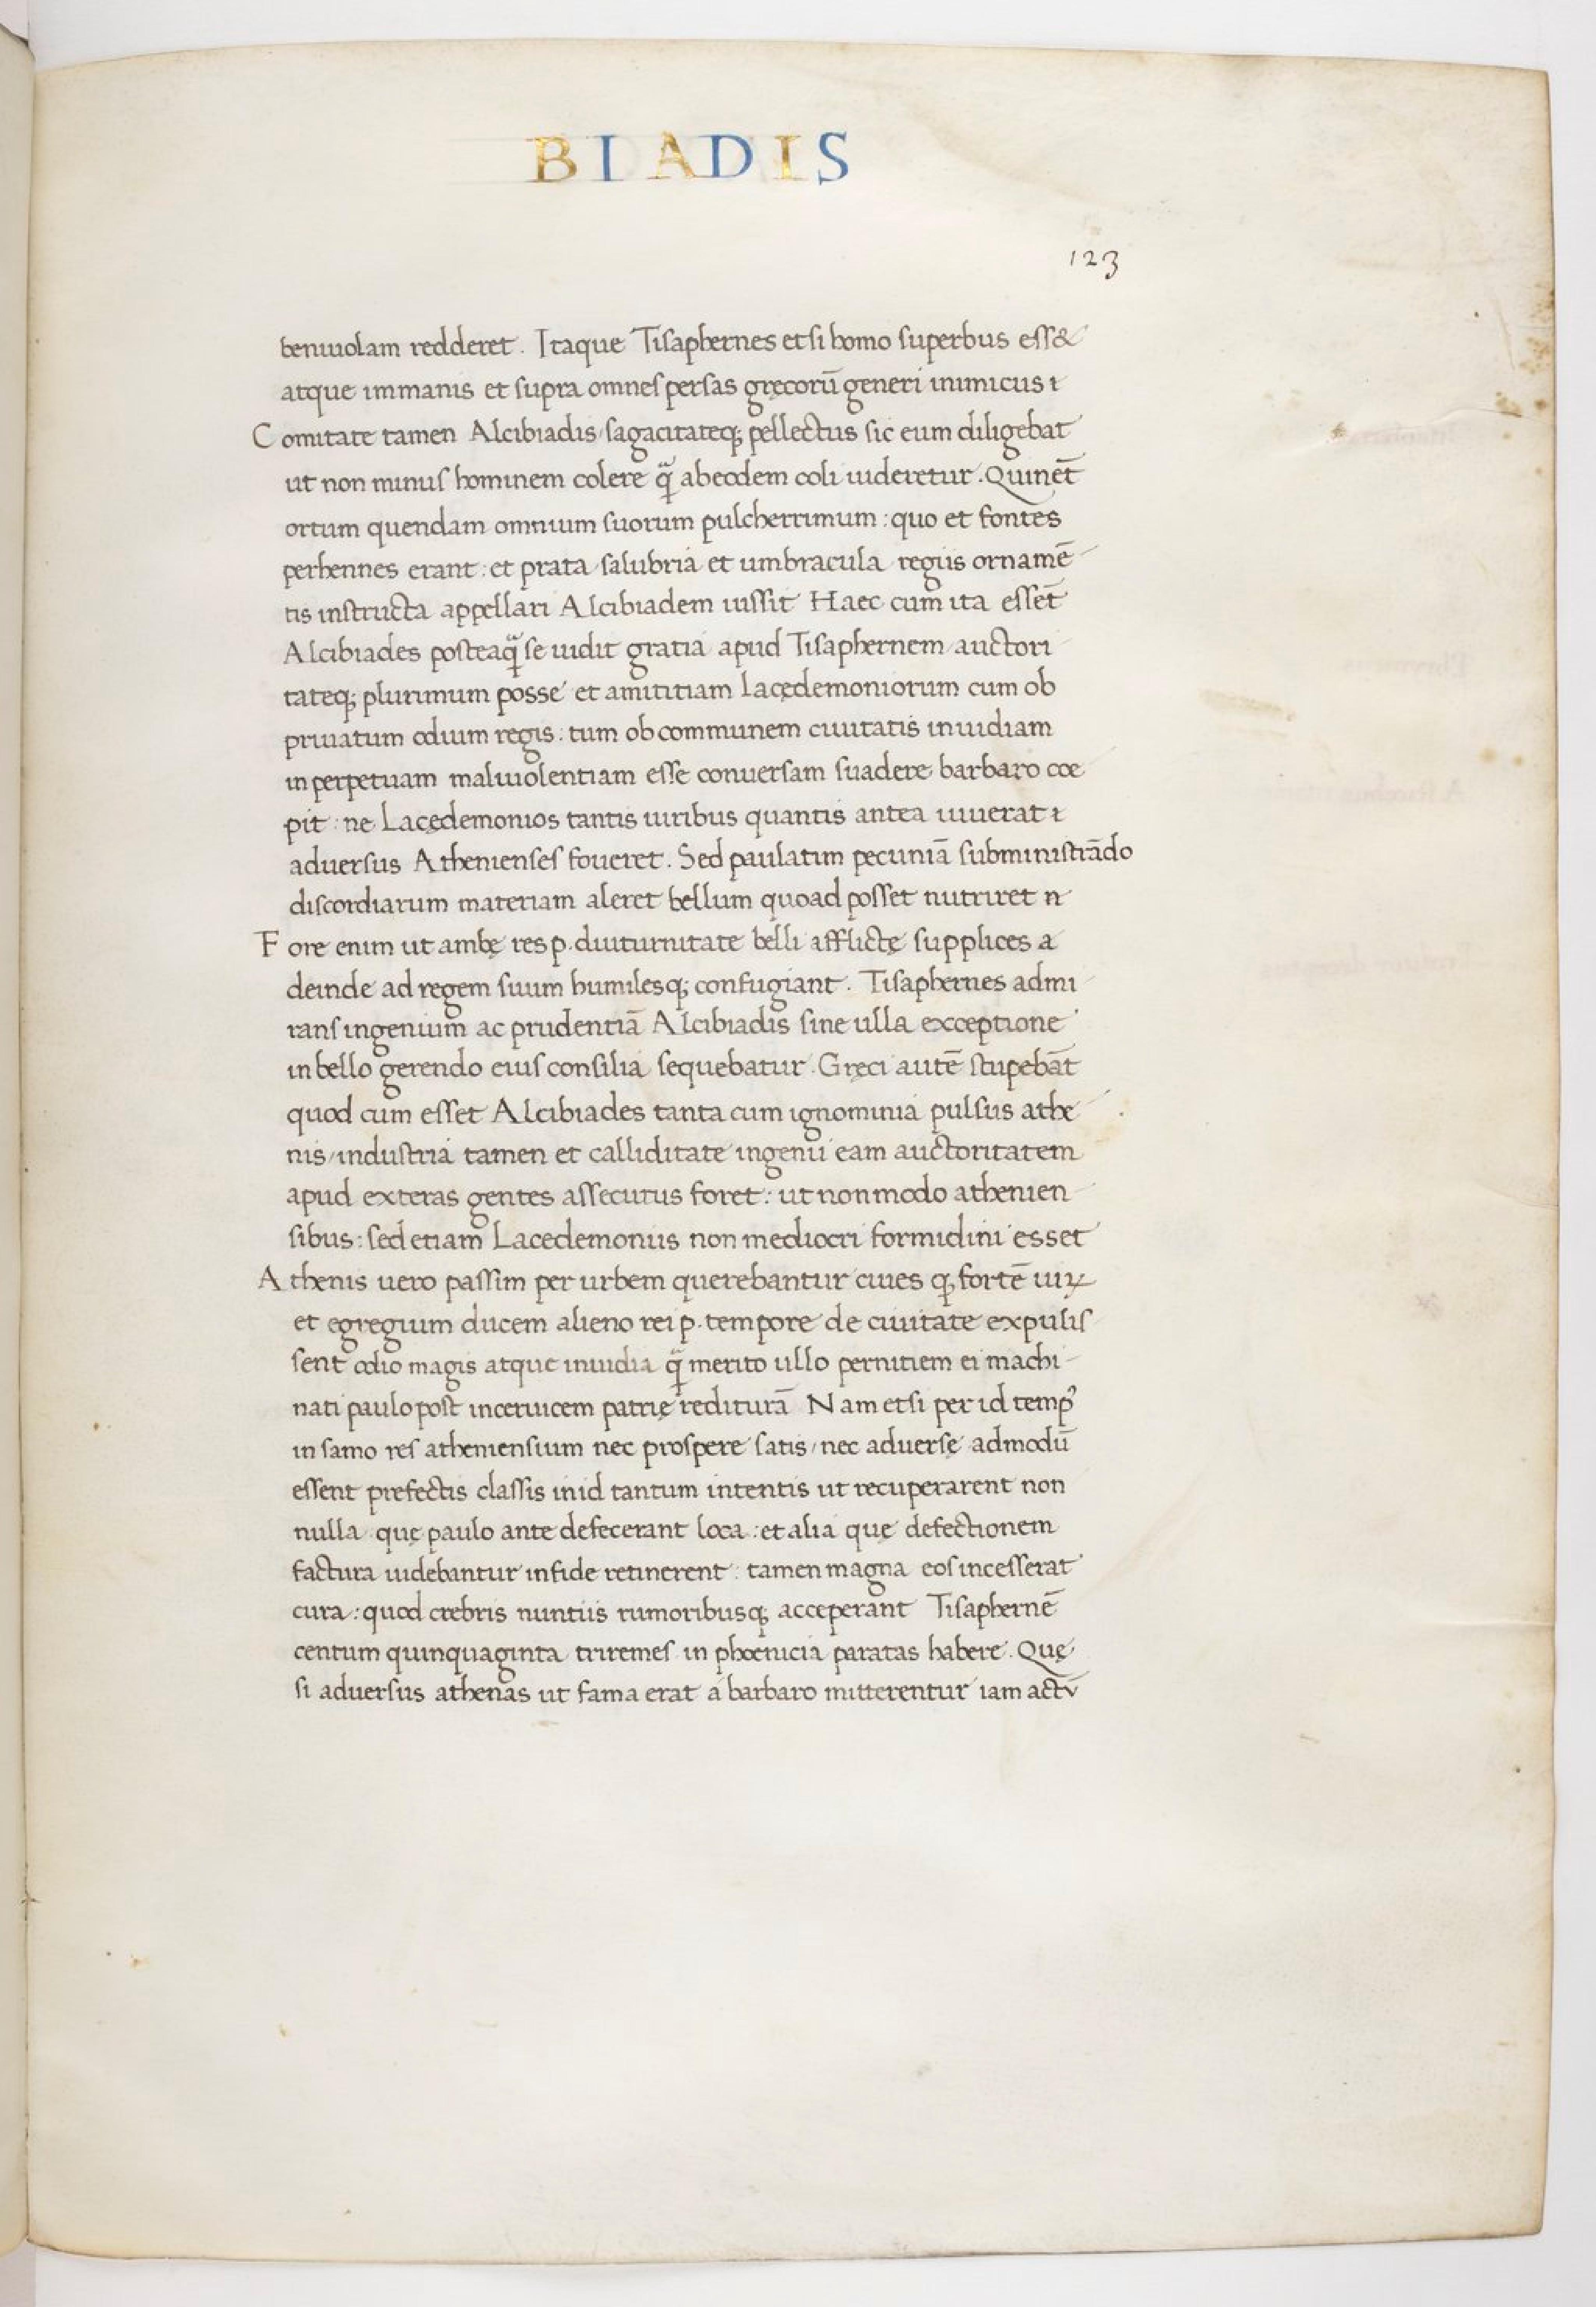 BIADIS
123
beniuolam redderet. Itaque Tisaphernes etsi homo superbus ess&
atque immanis et supra omnes persas gręcorū generi inimicus
Comitate tamen Alcibiadis/sagacitateq; pellectus sic eum diligebat
ut non minus hominem colere q̄ ab eodem coli uideretur. Quinet̄
ortum quendam omnium suorum pulcherrimum: quo et fontes
perhennes erant: et prata salubria et umbracula regiis ornamē
tis instructa appellari Alcibiadem iussit Haec cum ita essēt
Alcibiades posteaq̄ se uidit gratia apud Tisaphernem auctori
tateq; plurimum posse et amititiam Lacędemoniorum cum ob
priuatum odium regis: tum ob communem ciuitatis inuidiam
in perpetuam maliuolentiam esse conuersam suadere barbaro coe
pit: ne Lacędemonios tantis uiribus quantis antea iuuerat
aduersus Athenienses foueret. Sed paulatim pecuniā subministrādo
discordiarum materiam aleret bellum quoad posset nutriret
Fore enim ut ambę res p. diuturnitate belli afflictę supplices a
deinde ad regem suum humilesq; confugiant. Tisaphernes admi
rans ingenium ac prudentiā Alcibiadis sine ulla exceptione
in bello gerendo eius consilia sequebatur. Gręci autē stupebāt
quod cum esset Alcibiades tanta cum ignominia pulsus athe
nis/industria tamen et calliditate ingenii eam auctoritatem
apud exteras gentes assecutus foret: ut non modo athenien
sibus: sed etiam Lacedemoniis non mediocri formidini esset
Athenis uero passim per urbem querebantur ciues q; fortē uiꝝ
et egregium ducem alieno rei p. tempore de ciuitate expulis
sent odio magis atque inuidia q̄ merito ullo pernitiem ei machi
nati paulo post in ceruicem patrię rediturā Nam etsi per id temp9
in samo res atheniensium nec prospere satis/nec aduersę admodū
essent prefectis classis in id tantum intentis ut recuperarent non
nulla quę paulo ante defecerant loca: et alia quę defectionem
factura uidebantur in fide retinerent: tamen magna eos incesserat
cura: quod crebris nuntiis rumoribusq; acceperant Tisaphernē
centum quinquaginta triremes in phoenicia paratas habere. Quę
si aduersus athenas ut fama erat a barbaro mitterentur iam actū